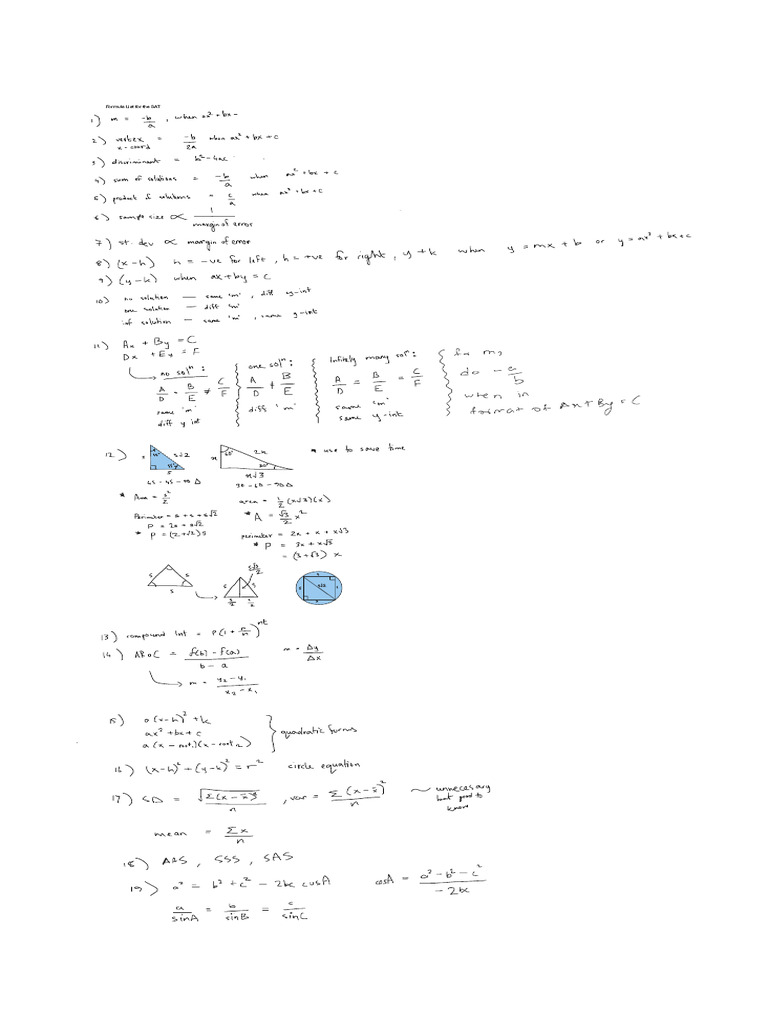 Formula List for the SAT
1) m = -b/a , when ax² + bx -
2) vertex x-coord = -b/2a when ax² + bx + c
3) discriminant = b² - 4ac
4) sum of solutions = -b/a when ax² + bx + c
5) product of solutions = c/a when ax² + bx + c
6) sample size ∝ 1/margin of error
7) st. dev ∝ margin of error
8) (x-h) h = -ve for left, h = +ve for right, y + k when y = mx + b or y = ax² + bx + c
9) (y-k) when ax + by = c
10) no solution — same 'm', diff y-int
one solution — diff 'm'
inf solution — same 'm', same y-int
11) Ax + By = C
Dx + Ey = F
no solⁿ:
A/D = B/E ≠ C/F
same 'm'
diff y int
one solⁿ:
A/D ≠ B/E
diff 'm'
Infitely many solⁿ:
A/D = B/E = C/F
same 'm'
same y-int
for m,
do -a/b
when in
format of Ax + By = C
12)
s
45°
s√2
45°
s
45-45-90 Δ
x
60°
2x
30°
x√3
30-60-90 Δ
* use to save time
* Area = s²/2
Perimeter = s + s + s√2
P = 2s + s√2
* P = (2+√2)s
area = 1/2 (x√3)(x)
* A = √3/2 x²
perimeter = 2x + x + x√3
* P = 3x + x√3
= (3+√3) x
s s
s
s√3/2
s s
s/2 s/2
s
s√2
s
13) compound Int = P(1 + r/n)^nt
14) ARoC = f(b) - f(a) / b - a
m = Δy/Δx
m = y₂ - y₁ / x₂ - x₁
15) a(x-h)² + k
ax² + bx + c
a(x - root₁)(x - root₂)
quadratic forms
16) (x-h)² + (y-k)² = r² circle equation
17) SD = √Σ(x-x̄)² / n , var = Σ(x-x̄)² / n
~ unnecesary
but good to
know
mean = Σx/n
18) AAS, SSS, SAS
19) a² = b² + c² - 2bc cosA
cosA = a² - b² - c² / -2bc
a/sinA = b/sinB = c/sinC